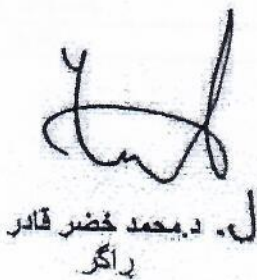 ل. د.محمد خضر قادر
راگر